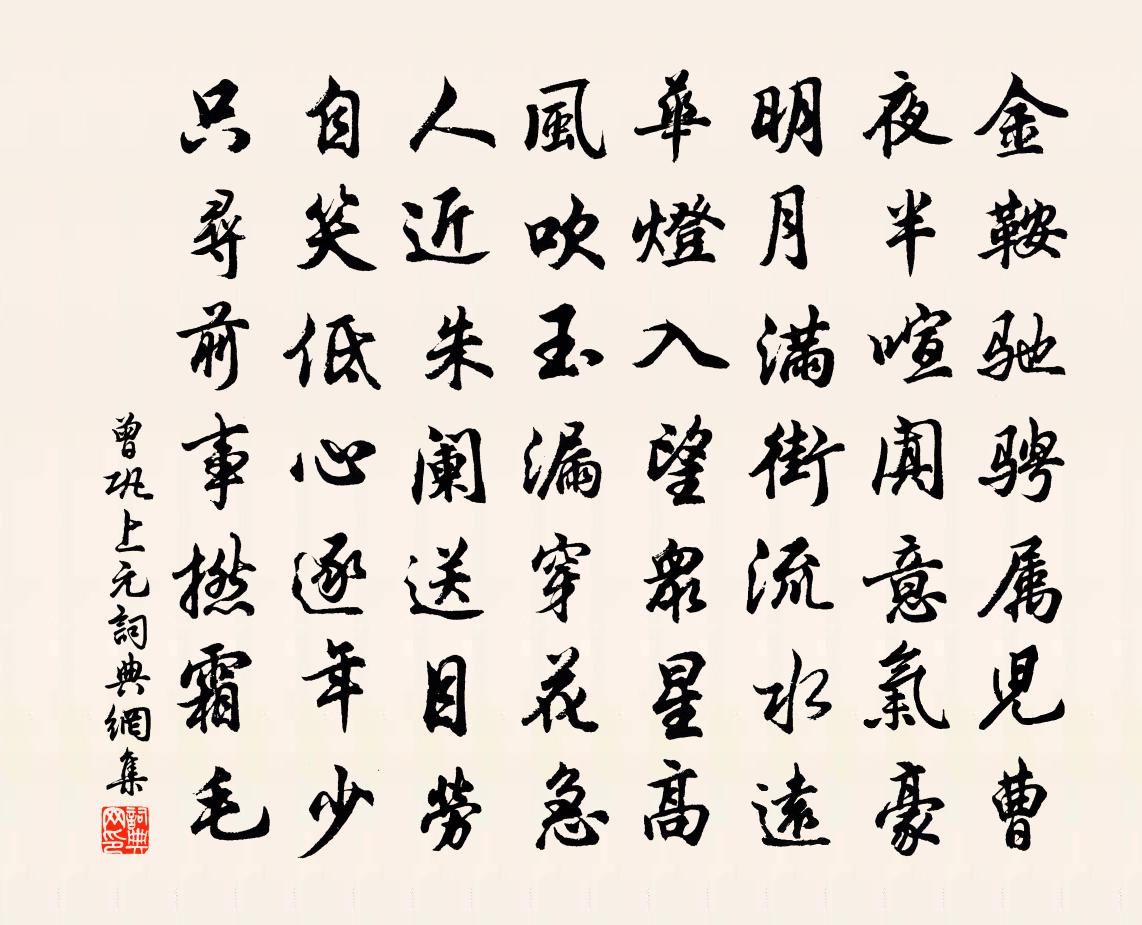 金鞍驰骋属児曹
夜半喧阗意氣豪
明月满街流水遠
華燈入望衆星髙
風吹玉漏穿花急
人近朱阑送目勞
自笑低心逐年少
只尋前事撚霜毛
曾巩上元詞典網集
詞典网印